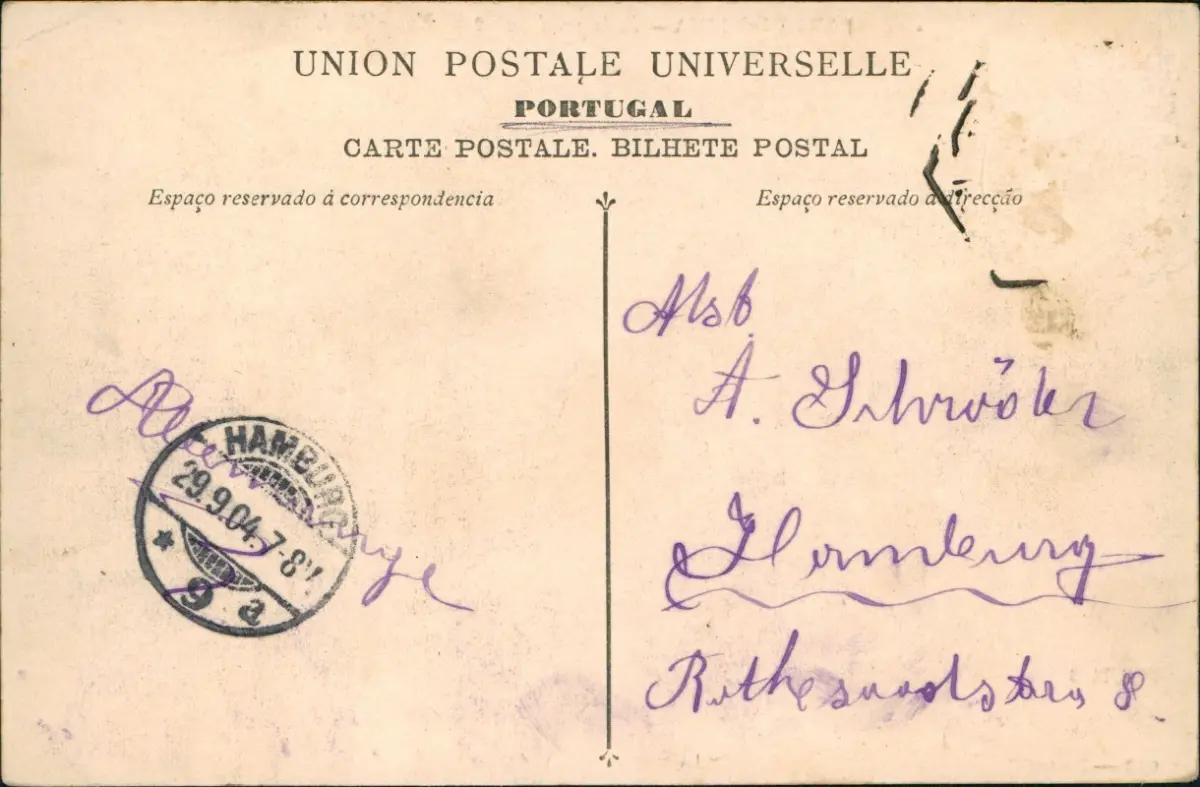 UNION POSTALE UNIVERSELLE
PORTUGAL
CARTE POSTALE. BILHETE POSTAL
Espaço reservado á correspondencia
Espaço reservado á direcção
A. Schröder
Hamburg
8
HAMBURG
29.9.04.7-8V
* 9 a